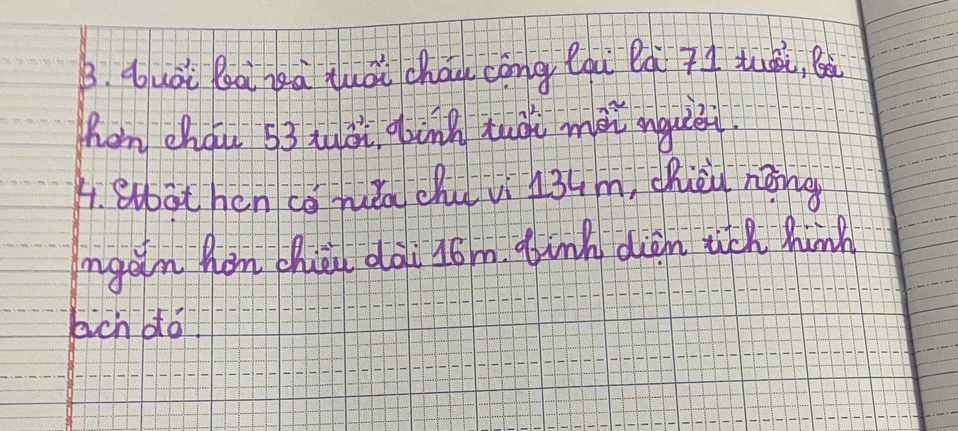 3. Tuổi bà và tuổi cháu cộng lại là 71 tuổi, bà
hơn cháu 53 tuổi, tính tuổi mỗi người.
4. Một hcn có nửa chu vi 134 m, chiều rộng
ngắn hơn chiều dài 16 m. Tính diện tích hình
hcn đó.